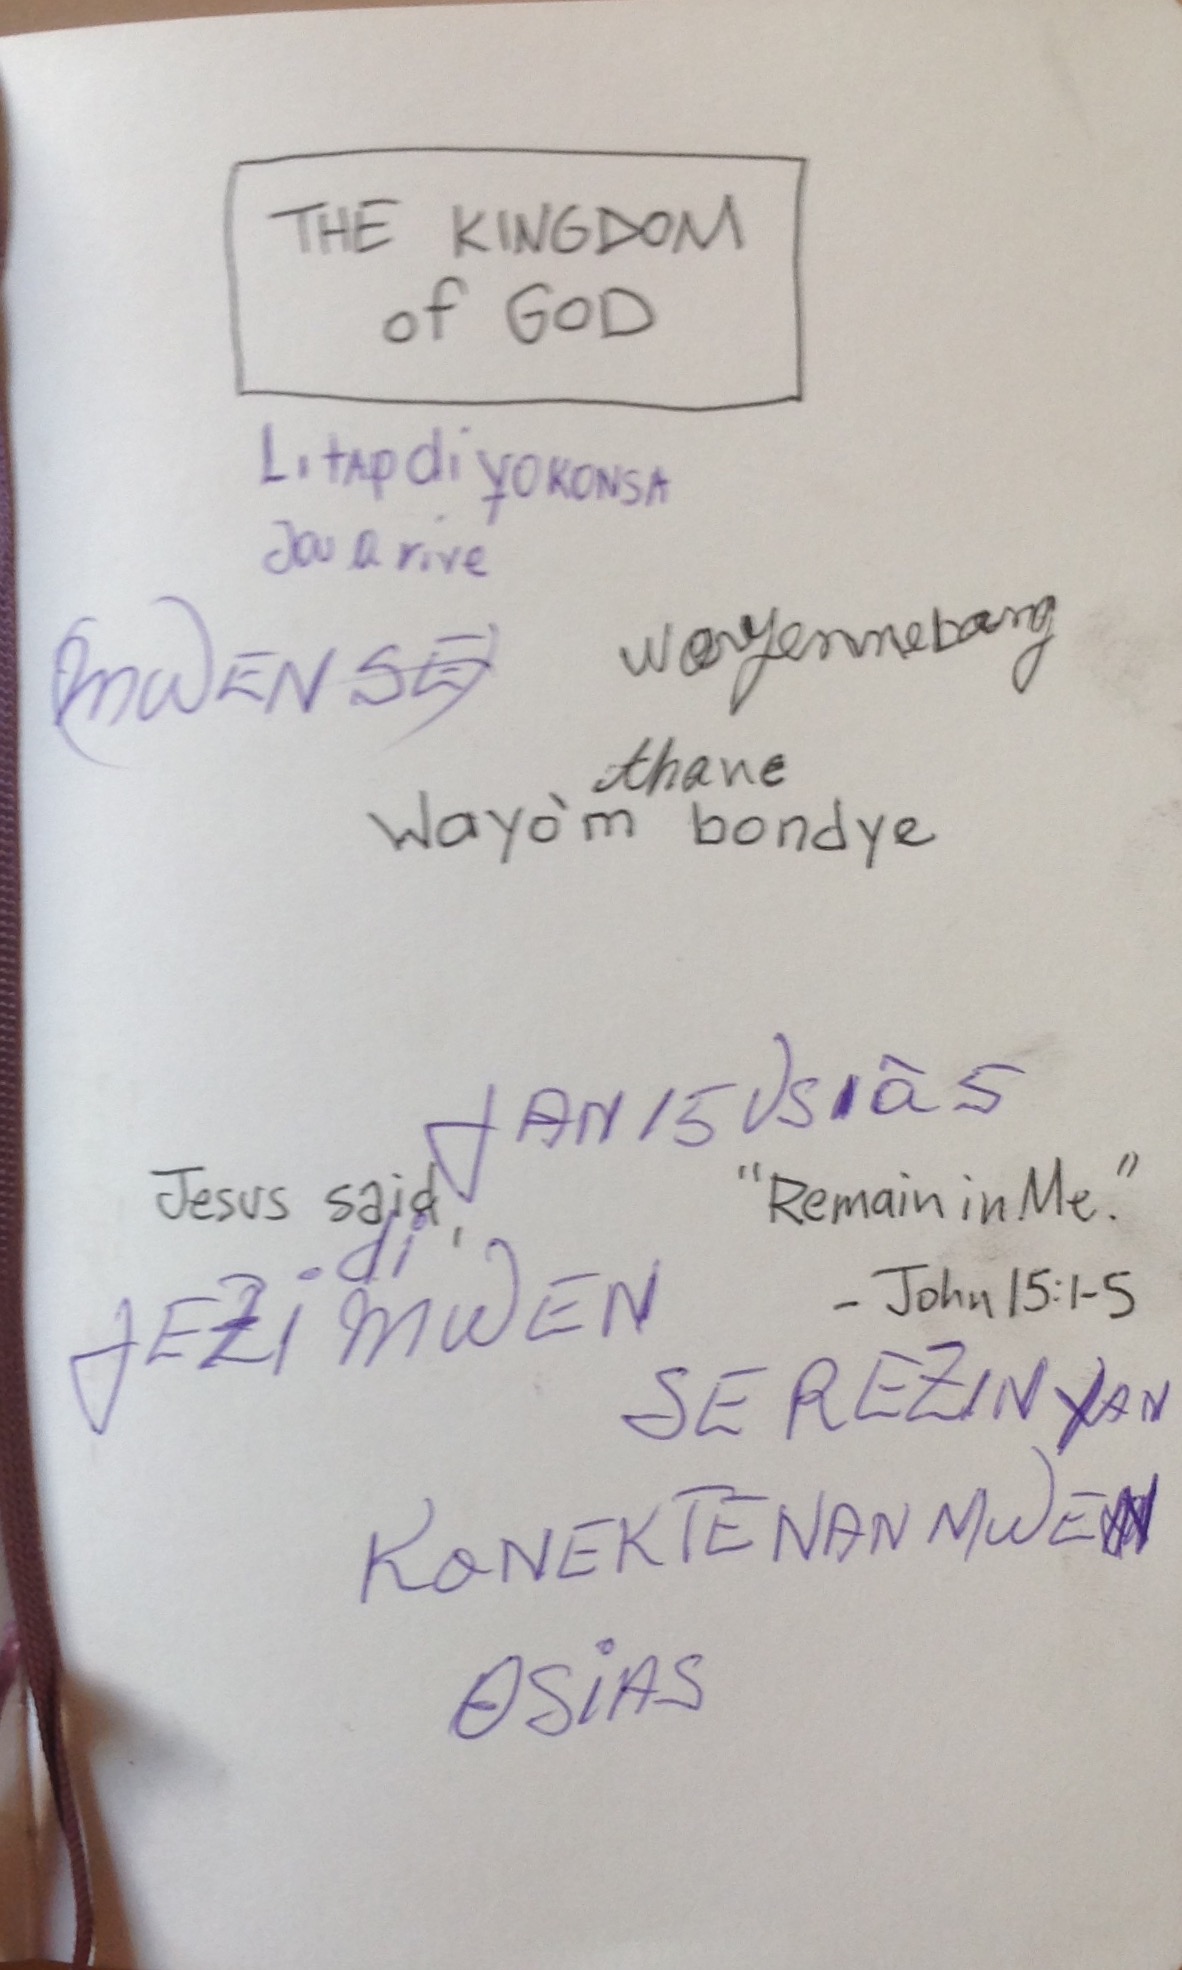 THE KINGDOM
of GOD
Li tap di yo konsa
Jou a rive
MWEN SE
thane
Wayòm bondye
JAN 15 VSIÂ 5
Jesus said,
"Remain in Me."
- John 15:1-5
di
JEZI MWEN
SE REZIN YAN
KONEKTE NAN MWEN
OSIAS